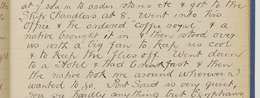 at 7.30am to order stores etc & got to the
Ship Chandlers at 8. Went into this
Office & he ordered Coffee, &
native brought it in & then stood over
us with a big fan to keep us cool
& to keep the flies off. Went down
to a Hotel & had Breakfast & then
the native took me around wherever I
wanted to go. Port Said is very quiet,
you see hardly anything but Elephants